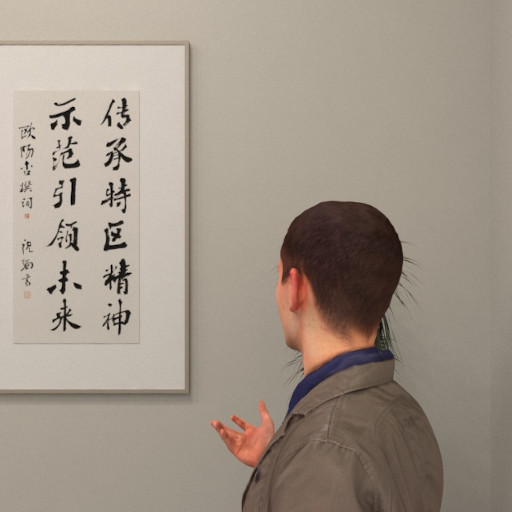 传承特区精神
示范引领未来
欧阳
撰词
书